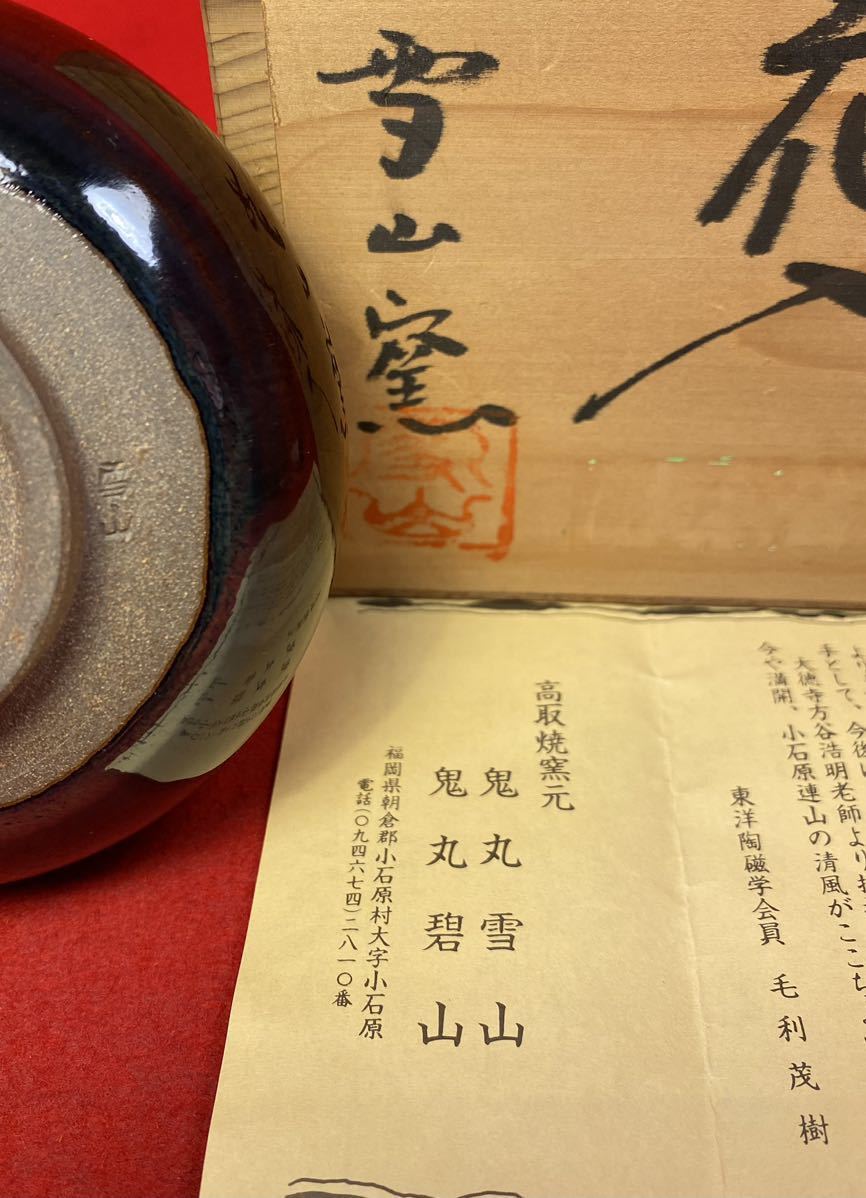 花入
雪山窯
雪山
手として、今後
大徳寺方谷浩明老師より
今や満開、小石原連山の清風がここち
東洋陶磁学会員 毛利茂樹
高取焼窯元
鬼丸雪山
鬼丸碧山
福岡県朝倉郡小石原村大字小石原
電話(〇九四六七四)二八一〇番